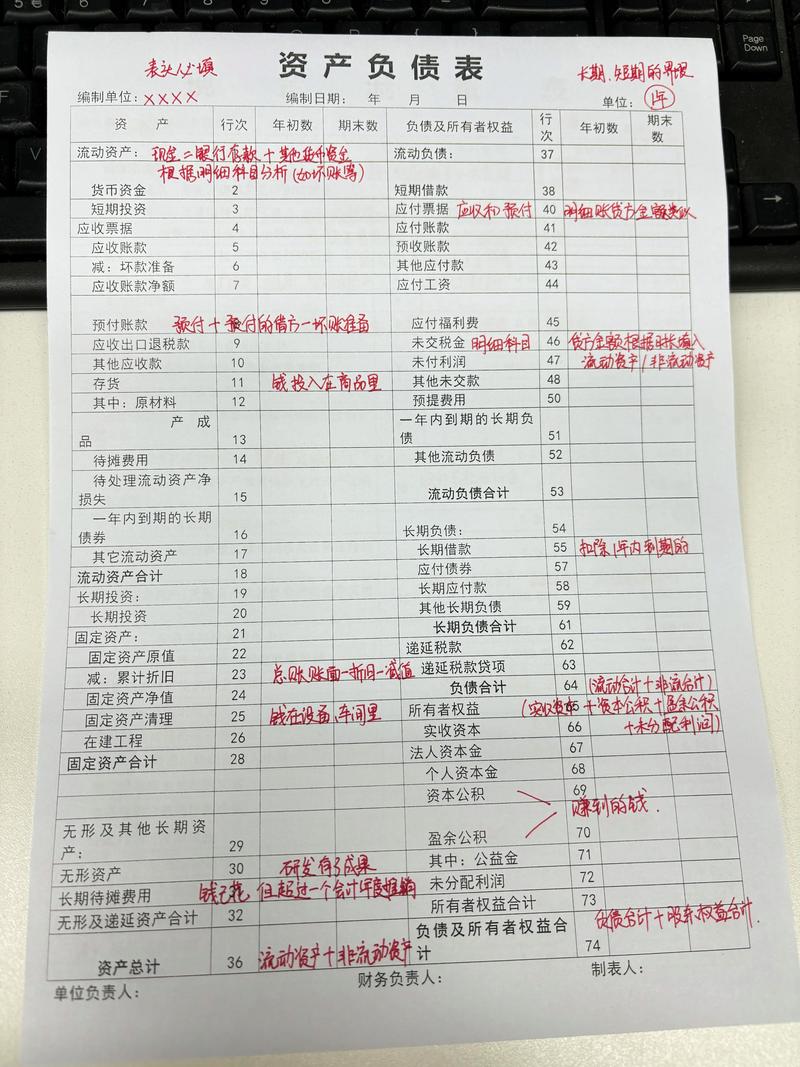 表头必填
资产负债表
长期、短期的界限
编制单位：XXXX 编制日期： 年 月 日 单位： 1年
资 产 行次 年初数 期末数 负债及所有者权益 行次 年初数 期末数
流动资产： 现金=银行存款+其他货币资金 流动负债： 37
根据明细科目分析(如坏账等)
货币资金 2 短期借款 38
短期投资 3 应付票据 应收和预付 40 明细账贷方金额
应收票据 4 应付账款 41
应收账款 5 预收账款 42
减：坏款准备 6 其他应付款 43
应收账款净额 7 应付工资 44
预付账款 预付+预付的借方-坏账准备 应付福利费 45
应收出口退税款 9 未交税金 明细科目 46 贷方金额根据时长填入
其他应收款 10 未付利润 47 流动资产/非流动资产
存货 11 钱投入在商品里 其他未交款 48
其中：原材料 12 预提费用 50
产成品 13 一年内到期的长期负债 51
待摊费用 14 其他流动负债 52
待处理流动资产净损失 15 流动负债合计 53
一年内到期的长期债券 16 长期负债： 54
其它流动资产 17 长期借款 55 扣除1年内到期的
流动资产合计 18 应付债券 57
长期投资： 19 长期应付款 58
长期投资 20 其他长期负债 59
固定资产： 21 长期负债合计 61
固定资产原值 22 递延税款 62
减：累计折旧 23 总账账面-折旧-减值 递延税款贷项 63
固定资产净值 24 负债合计 64 (流动合计+非流合计)
固定资产清理 25 钱在设备、车间里 所有者权益 65 (实收资本+资本公积+盈余公积
在建工程 26 实收资本 66 +未分配利润)
固定资产合计 28 法人资本金 67
个人资本金 68
资本公积 69
赚到的钱.
无形及其他长期资产： 29 盈余公积 70
无形资产 30 研发有了成果 其中：公益金 71
长期待摊费用 钱已花 但超过一个会计年度摊销 未分配利润 72
无形及递延资产合计 32 所有者权益合计 73
资产总计 36 流动资产+非流动资产 负债及所有者权益合计 74 负债合计+股东权益合计.
单位负责人： 财务负责人： 制表人：